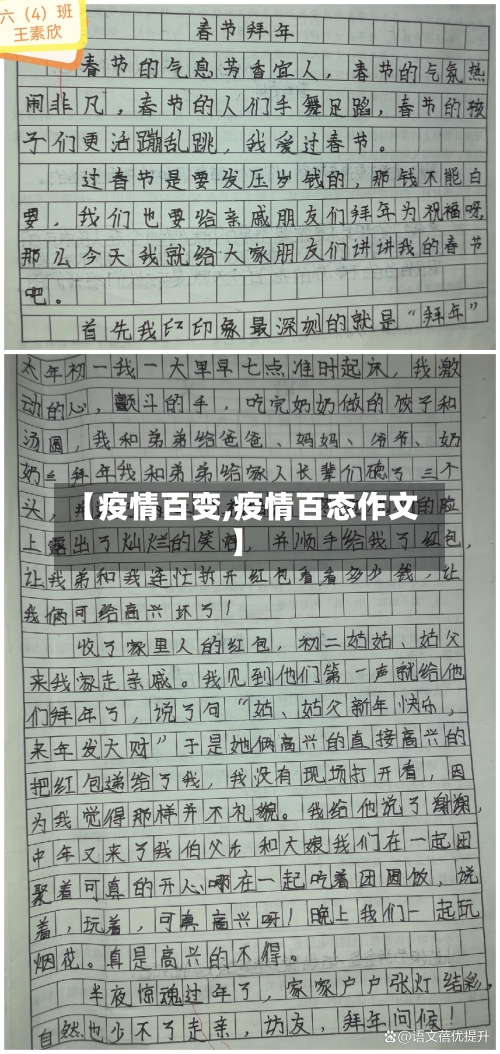 六（4）班
王素欣
春节拜年
春节的气息芳香宜人，春节的气氛热
闹非凡，春节的人们手舞足蹈，春节的孩
子们更活蹦乱跳，我爱过春节。
过春节是要发压岁钱的，那钱不能白
要，我们也要给亲戚朋友们拜年为祝福呀，
那么今天我就给大家朋友们讲讲我的春节
吧。
首先我印象最深刻的就是“拜年”
大年初一我一大早早七点准时起床，我激
动的心，颤斗的手，吃完奶奶做的饺子和
汤圆，我和弟弟给爸爸、妈妈、爷爷、奶
奶拜年我和弟弟给家人长辈们磕了三个
头，的脸
【疫情百变,疫情百态作文
】
上露出了灿烂的笑，并顺手给我了红包，
让我弟和我连忙拆开红包看看多少钱，让
我俩可给高兴坏了！
收了家里人的红包，初二姑姑、姑父
来我家走亲戚。我见到他们第一声就给他
们拜年了，说了句“姑、姑父新年快乐，
来年发大财”于是她俩高兴的直接高兴的
把红包递给了我，我没有现场打开看，因
为我觉得那样并不礼貌。我给他说了谢谢，
中年又来了我伯父和大娘我们在一起团
聚着可真的开心啊在一起吃着团圆饭，说
着，玩着，可真高兴呀！晚上我们一起玩
烟花。真是高兴的不得。
半夜惊魂过年了，家家户户张灯结彩，
自然也少不了走亲，访友，拜年问候！
@语文蓓优提升